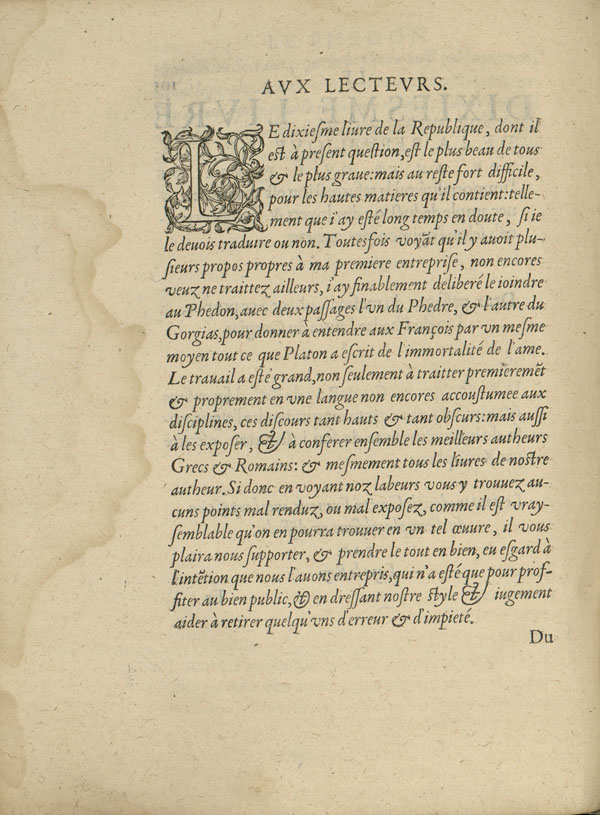 AVX LECTEVRS.
LE dixiesme liure de la Republique, dont il
est à present question, est le plus beau de tous
& le plus graue: mais au reste fort difficile,
pour les hautes matieres qu'il contient: telle-
ment que i'ay esté long temps en doute, si ie
le deuois traduire ou non. Toutesfois voyāt qu'il y auoit plu-
sieurs propos propres à ma premiere entreprise, non encores
veuz ne traittez ailleurs, i'ay finablement deliberé le ioindre
au Phedon, auec deux passages l'vn du Phedre, & l'autre du
Gorgias, pour donner à entendre aux François par vn mesme
moyen tout ce que Platon a escrit de l'immortalité de l'ame.
Le trauail a esté grand, non seulement à traitter premieremēt
& proprement en vne langue non encores accoustumee aux
disciplines, ces discours tant hauts & tant obscurs: mais aussi
à les exposer, & à conferer ensemble les meilleurs autheurs
Grecs & Romains: & mesmement tous les liures de nostre
autheur. Si donc en voyant noz labeurs vous y trouuez au-
cuns points mal renduz, ou mal exposez, comme il est vray-
semblable qu'on en pourra trouuer en vn tel œuure, il vous
plaira nous supporter, & prendre le tout en bien, eu esgard à
l'intētion que nous l'auons entrepris, qui n'a esté que pour prof-
fiter au bien public, & en dressant nostre style & iugement
aider à retirer quelqu'vns d'erreur & d'impieté.
Du